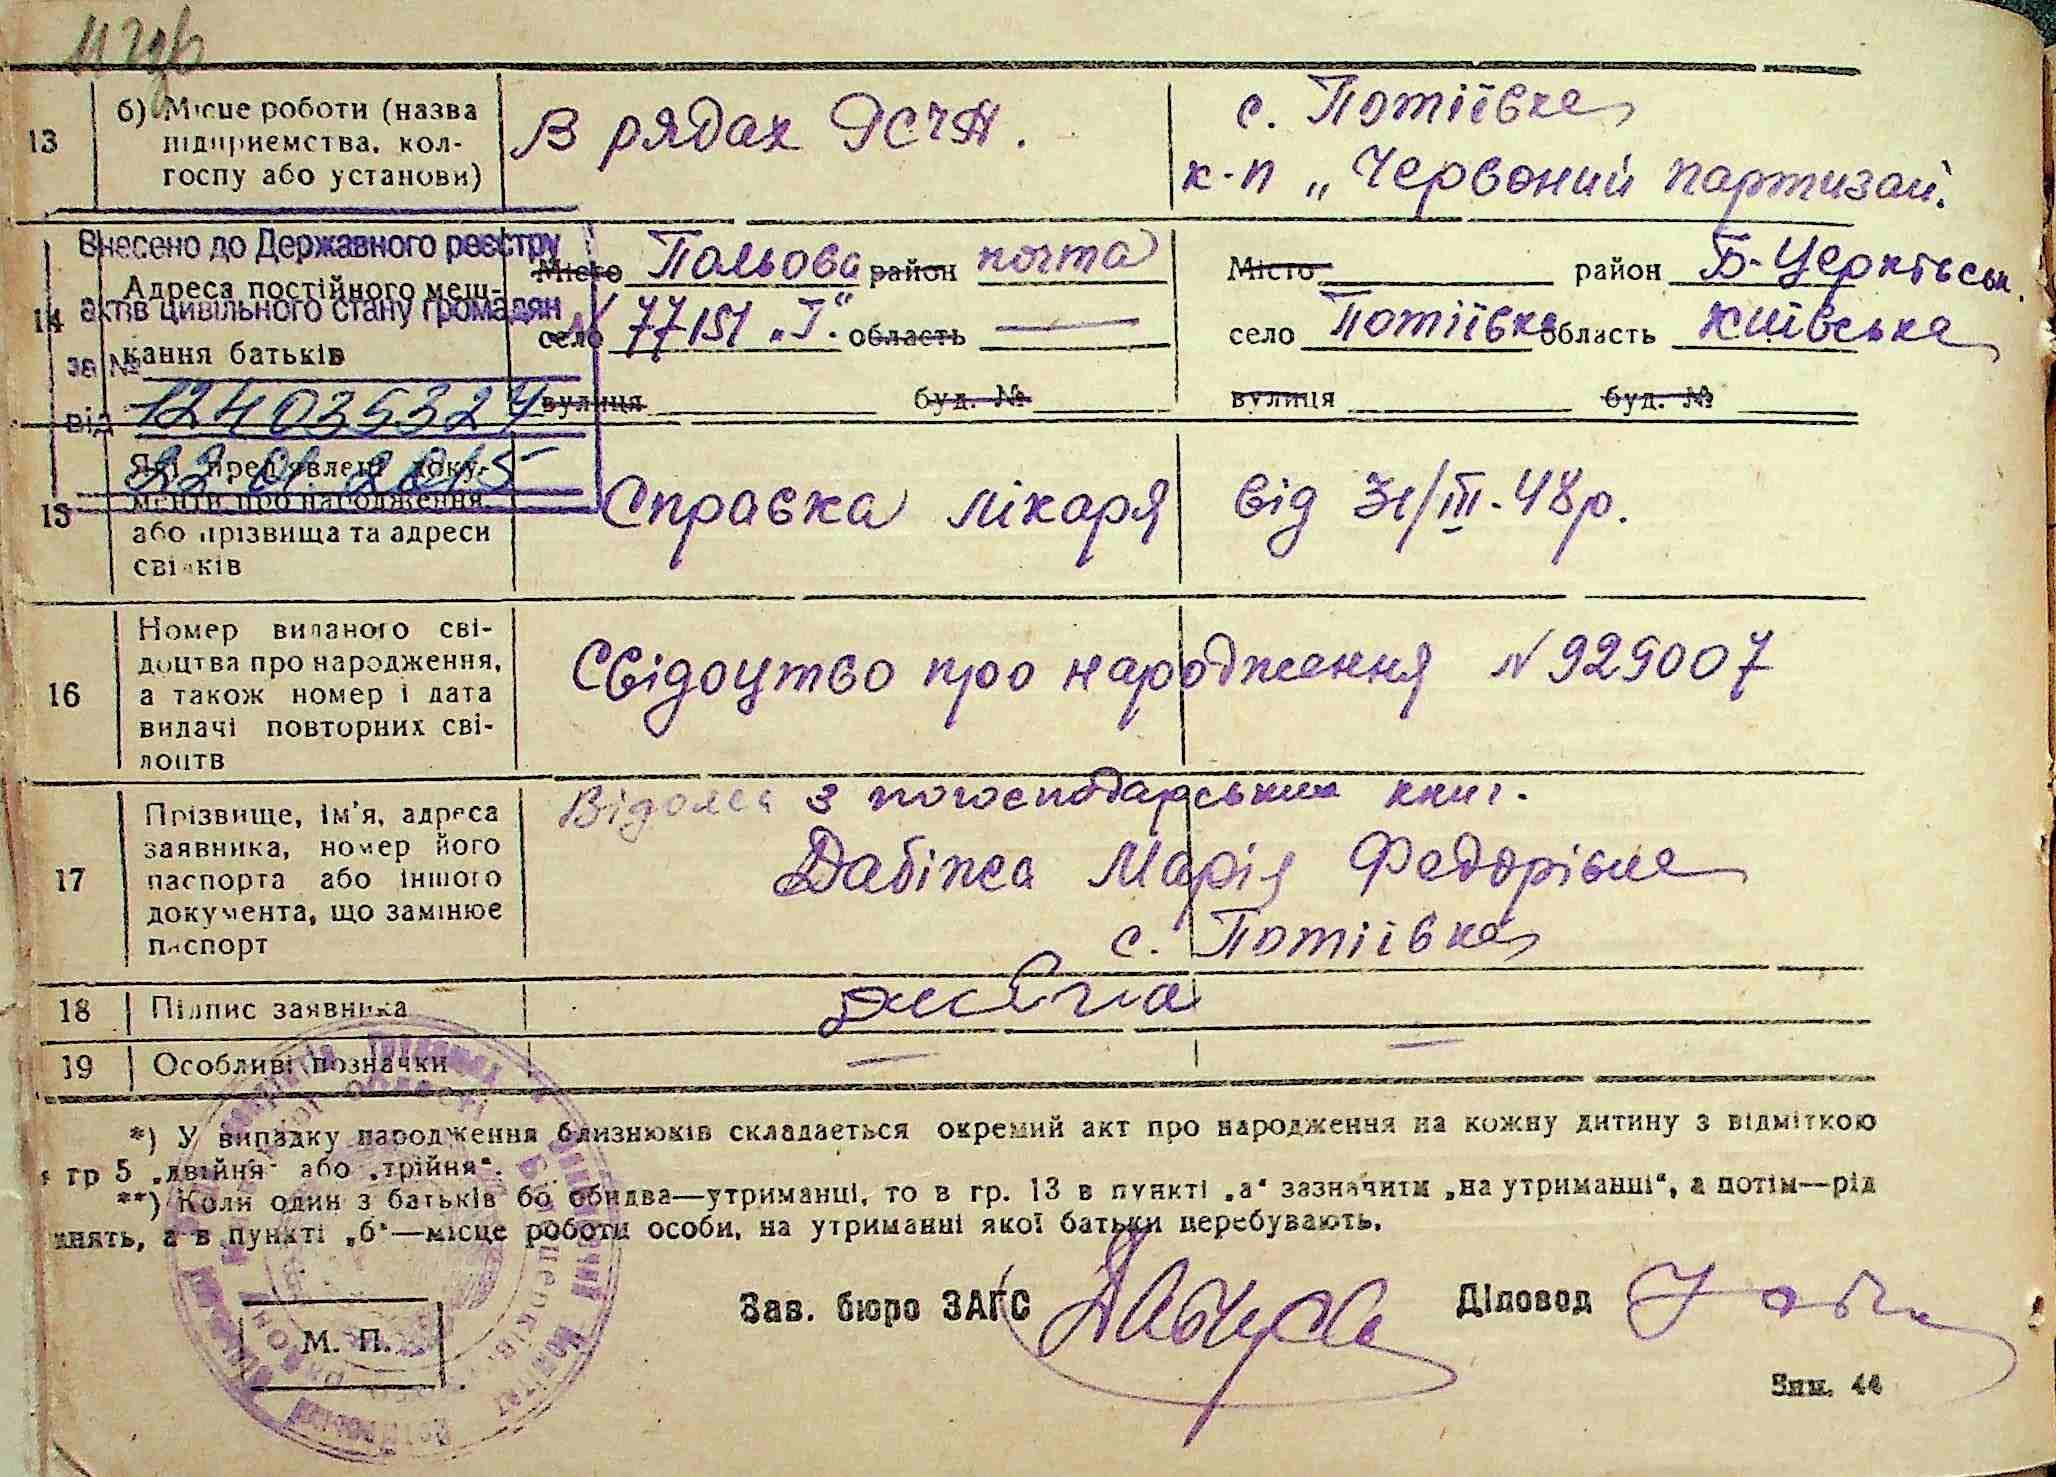 13
б) Місце роботи (назва
підприємства, кол-
госпу або установи)
В рядах
с. Потіївка
к-п „Червоний партизан.
Внесено до Державного реєстру
актів цивільного стану громадян
за №
12403532
від 22 01 2015
14
Адреса постійного меш-
кання батьків
Місто Польова район почта
село 77151 „Г." область —
вулиця буд. №
Місто район Б-Церківськ.
село Потіївка область Київська
вулиця буд. №
15
Які пред'явлені доку-
менти про народження
або прізвища та адреси
свідків
Справка лікаря від 31/III-48р.
16
Номер виданого сві-
доцтва про народження,
а також номер і дата
видачі повторних сві-
доцтв
Свідоцтво про народження № 929007
17
Прізвище, ім'я, адреса
заявника, номер його
паспорта або іншого
документа, що замінює
паспорт
з погосподарських книг.
Дабіжа Марія Федорівна
с. Потіївка
18
Підпис заявника
19
Особливі позначки
— —
*) У випадку народження близнюків складається окремий акт про народження на кожну дитину з відміткою
гр 5 „двійня" або „трійня".
**) Коли один з батьків бо обидва—утриманці, то в гр. 13 в пункті „а" зазначити „на утриманні", а потім—рід
знять, а в пункті „б"—місце роботи особи, на утриманні якої батьки перебувають.
Зав. бюро ЗАГС
Діловод
М. П.
Зам. 44